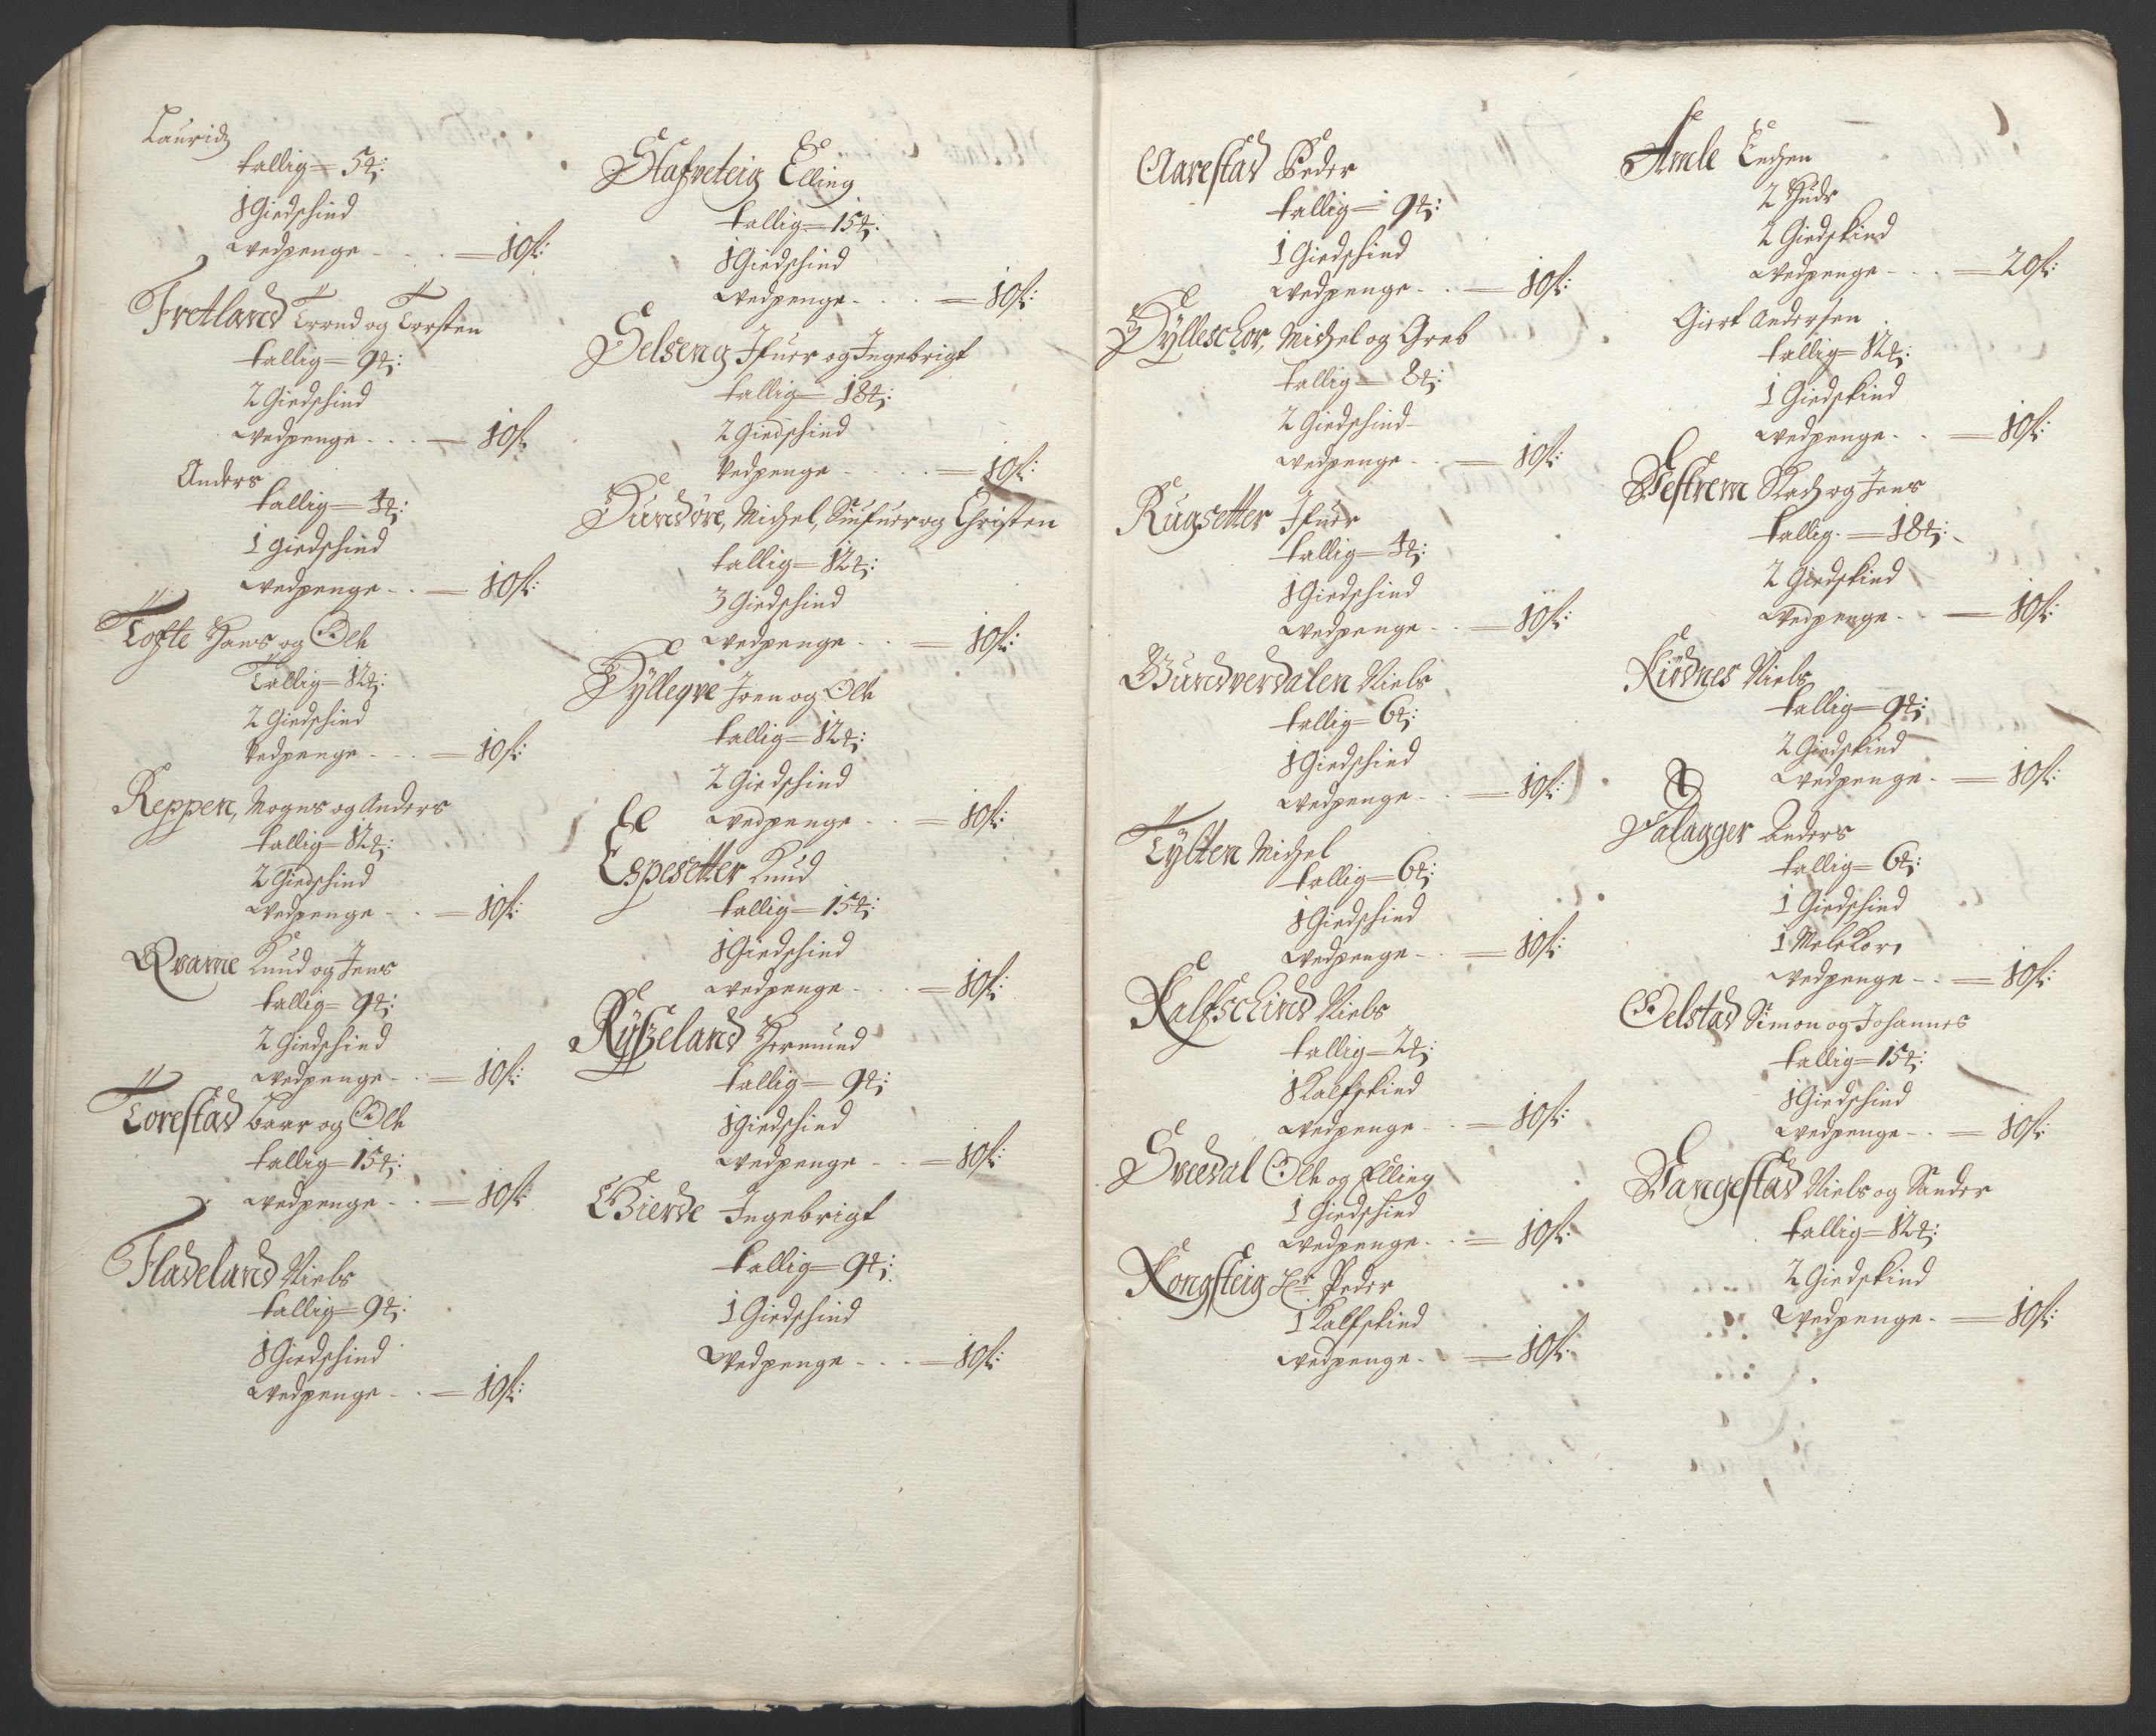 Lauridz
tallig = 5 ℔:
1 Giedschind
wedpenge - - - = 10 sk:
Fretland Trond og Torsten
tallig = 9 ℔:
2 Giedschind
wedpenge - - - = 10 sk:
Anders
tallig = 4 ℔:
1 Giedschind
wedpenge - - = 10 sk:
Tofte Hans og Ole
Tallig = 12 ℔:
2 Giedschind
Vedpenge - - - = 10 sk:
Reppen, Mogns og Anders
tallig = 12 ℔:
2 Giedschind
Wedpenge - - = 10 sk:
Qvame Knud og Jens
tallig = 9 ℔:
2 Giedschind
wedpenge - - = 10 sk:
Torestad Baar og Ole
tallig = 15 ℔:
wedpenge - - = 10 sk:
Fladeland Niels
tallig = 9 ℔:
1 Giedschind
wedpenge - - = 10 sk:
Stafveteig Elling
tallig = 15 ℔:
1 Giedschind
wedpenge - - - = 10 sk:
Selseng Ifuer og Ingebrigt
tallig = 18 ℔:
2 Giedschind
Vedpenge - - - = 10 sk:
Dundøre, Michel, Siufuer og Christen
tallig = 12 ℔:
3 Giedschind
wedpenge - - = 10 sk:
Hylleqve Joen og Ole
tallig = 12 ℔:
2 Giedschind
wedpenge - - = 10 sk:
Espesetter Knud
tallig = 15 ℔:
1 Giedschind
wedpenge - - - = 10 sk:
Rysseland Hermund
tallig = 9 ℔:
1 Giedschind
wedpenge - - = 10 sk:
Gierde Ingebrigt
tallig = 9 ℔:
1 Giedschind
Wedpenge - - - = 10 sk:
Aarestad Peder
tallig = 9 ℔:
1 Giedschind
wedpenge - - = 10 sk:
Hylleschor, Michel og Greb
tallig = 8 ℔:
2 Giedschind
wedpenge - - = 10 sk:
Rugsetter Ifuer
tallig = 4 ℔:
1 Giedschind
wedpenge - - = 10 sk:
Gundverdalen Niels
tallig = 6 ℔:
1 Giedschind
wedpenge - - = 10 sk:
Tylten Michel
tallig = 6 ℔:
1 Giedschind
wedpenge - - = 10 sk:
Kalfschind Niels
tallig = 2 ℔:
1 Kalfskind
wedpenge - - = 10 sk:
Svedal Ole og Elling
1 Giedschind
wedpenge - - = 10 sk:
Kongsteig Hr Peder
1 Kalfskind
wedpenge - - = 10 sk:
Amle Enchen
2 Huder
2 Giedskind
wedpenge - - - = 20 sk:
Giert Andersen
tallig = 12 ℔:
1 Giedskind
wedpenge - - = 10 sk:
Vestrem Stach og Jens
tallig = 18 ℔:
2 Giedskind
Wedpenge - - = 10 sk:
Kirdnes Niels
tallig = 9 ℔:
2 Giedskind
wedpenge - = 10 sk:
Falagger Anders
tallig = 6 ℔:
1 Giedschind
1 Mele Korn
wedpenge - - = 10 sk:
Oelstad Simon og Johannes
tallig = 15 ℔:
1 Giedschind
wedpenge - - = 10 sk:
Vangestad Niels og Sander
tallig = 12 ℔:
2 Giedskind
wedpenge - = 10 sk: